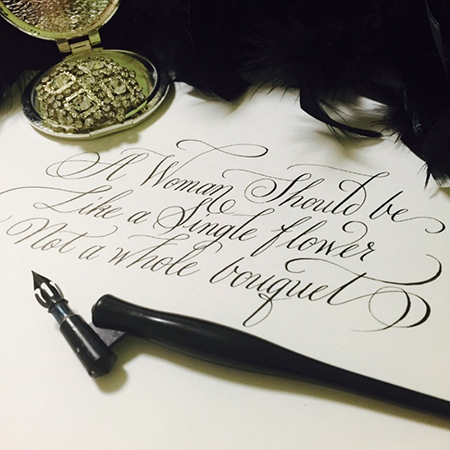 A Woman Should be
Like a Single flower
Not a whole bouquet